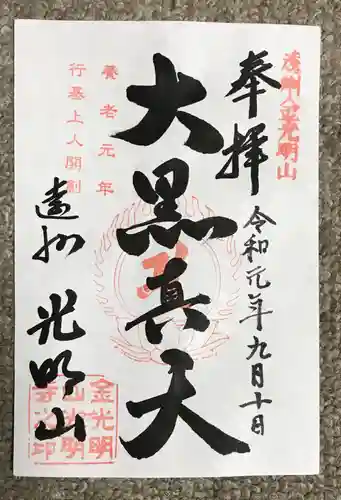 奉拝
遠州金光明山
令和元年九月十日
大黒真天
養老元年
行基上人開創
遠州
光明山
金光明
山光明
寺之印